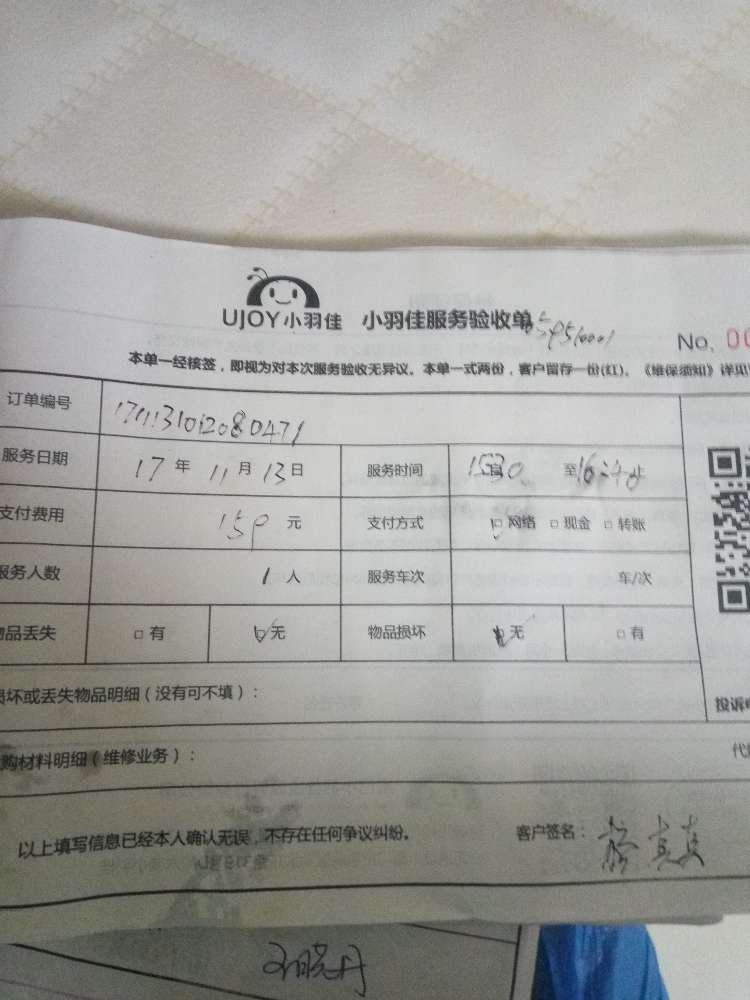 UJOY小羽佳 小羽佳服务验收单
No. 00
本单一经接签，即视为对本次服务验收无异议。本单一式两份，客户留存一份(红)。《维保须知》详见
订单编号
服务日期 17年 11月 13日 服务时间 至
支付费用 元 支付方式 网络 现金 转账
服务人数 1人 服务车次 车/次
物品丢失 有 无 物品损坏 无 有
损坏或丢失物品明细（没有可不填）：
投诉
购材料明细（维修业务）：
以上填写信息已经本人确认无误，不存在任何争议纠纷。 客户签名：